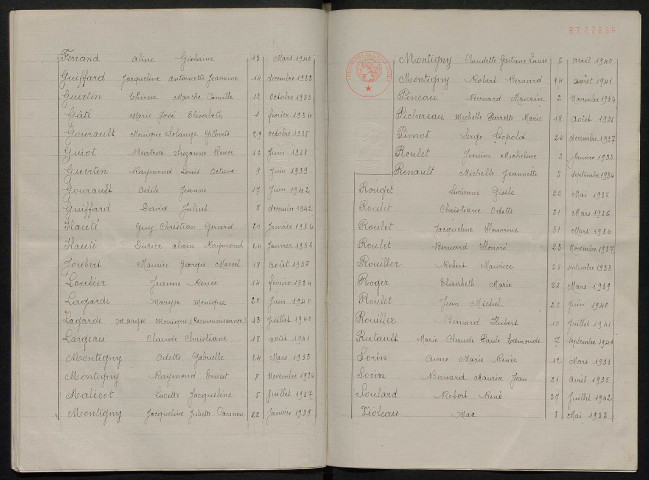 Ferrand Aline Gislaine 13 Mars 1940
Guiffard Jacqueline Antoinette Jeannine 14 décembre 1933
Guertin Etienne Marche Camille 12 octobre 1933
Gâté Marie José Elisabeth 1 février 1934
Gourault Monique Solange Gilberte 29 octobre 1935
Guiot Huguette Suzanne Renée 12 juin 1938
Guertin Raymond Louis 9 juin 1939
Gourault Odile Jeanne 19 juin 1942
Guiffard David Julien 8 décembre 1942
Hauté Guy Christian Gérard 20 Janvier 1934
Hauté Alain Raymond 24 Janvier 1938
Joubert Maurice Georges Marcel 19 août 1935
Loulier Jeanne Renée 14 février 1934
Lagarde Maryse Monique 28 juin 1940
Lagarde Maryse Monique (Reconnaissance) 13 juillet 1940
Largeau Claude Christiane 18 août 1941
Montigny Odette Gabrielle 24 Mars 1933
Montigny Raymond Ernest 8 Novembre 1934
Malicot Lucette Jacqueline 5 juillet 1937
Montigny Jacqueline Juliette 22 Janvier 1939
Montigny Claudette Gaétane Laure 5 avril 1940
Montigny Robert Bernard 24 août 1941
Pineau Bernard Maurice 2 Novembre 1934
Pichereau Michelle Pierrette Marie 18 août 1936
Pinot Serge Léopold 24 décembre 1937
Roulet Janine Micheline 2 Janvier 1933
Renault Michelle Jeannette 5 Septembre 1934
Rouget Lucienne Gisèle 20 Mai 1935
Roulet Christiane Odette 21 Mars 1936
Roulet Jacqueline 31 Mars 1936
Roulet Bernard Honoré 23 Novembre 1937
Rouillier Robert Maurice 25 septembre 1938
Roger Elisabeth Marie 25 Mars 1939
Roulet Jean Michel 25 juin 1940
Rouillier Bernard Hubert 10 juillet 1941
Rutault Marie Claude Paule Edmonde 7 septembre 1941
Sorin Anne Marie Renée 12 Mars 1933
Sorin Bernard Maurice Jean 21 avril 1935
Soulard Robert René 27 juillet 1942
Fioleau Max 3 Mai 1933